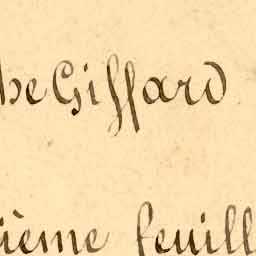 he Giffard
ième feuill